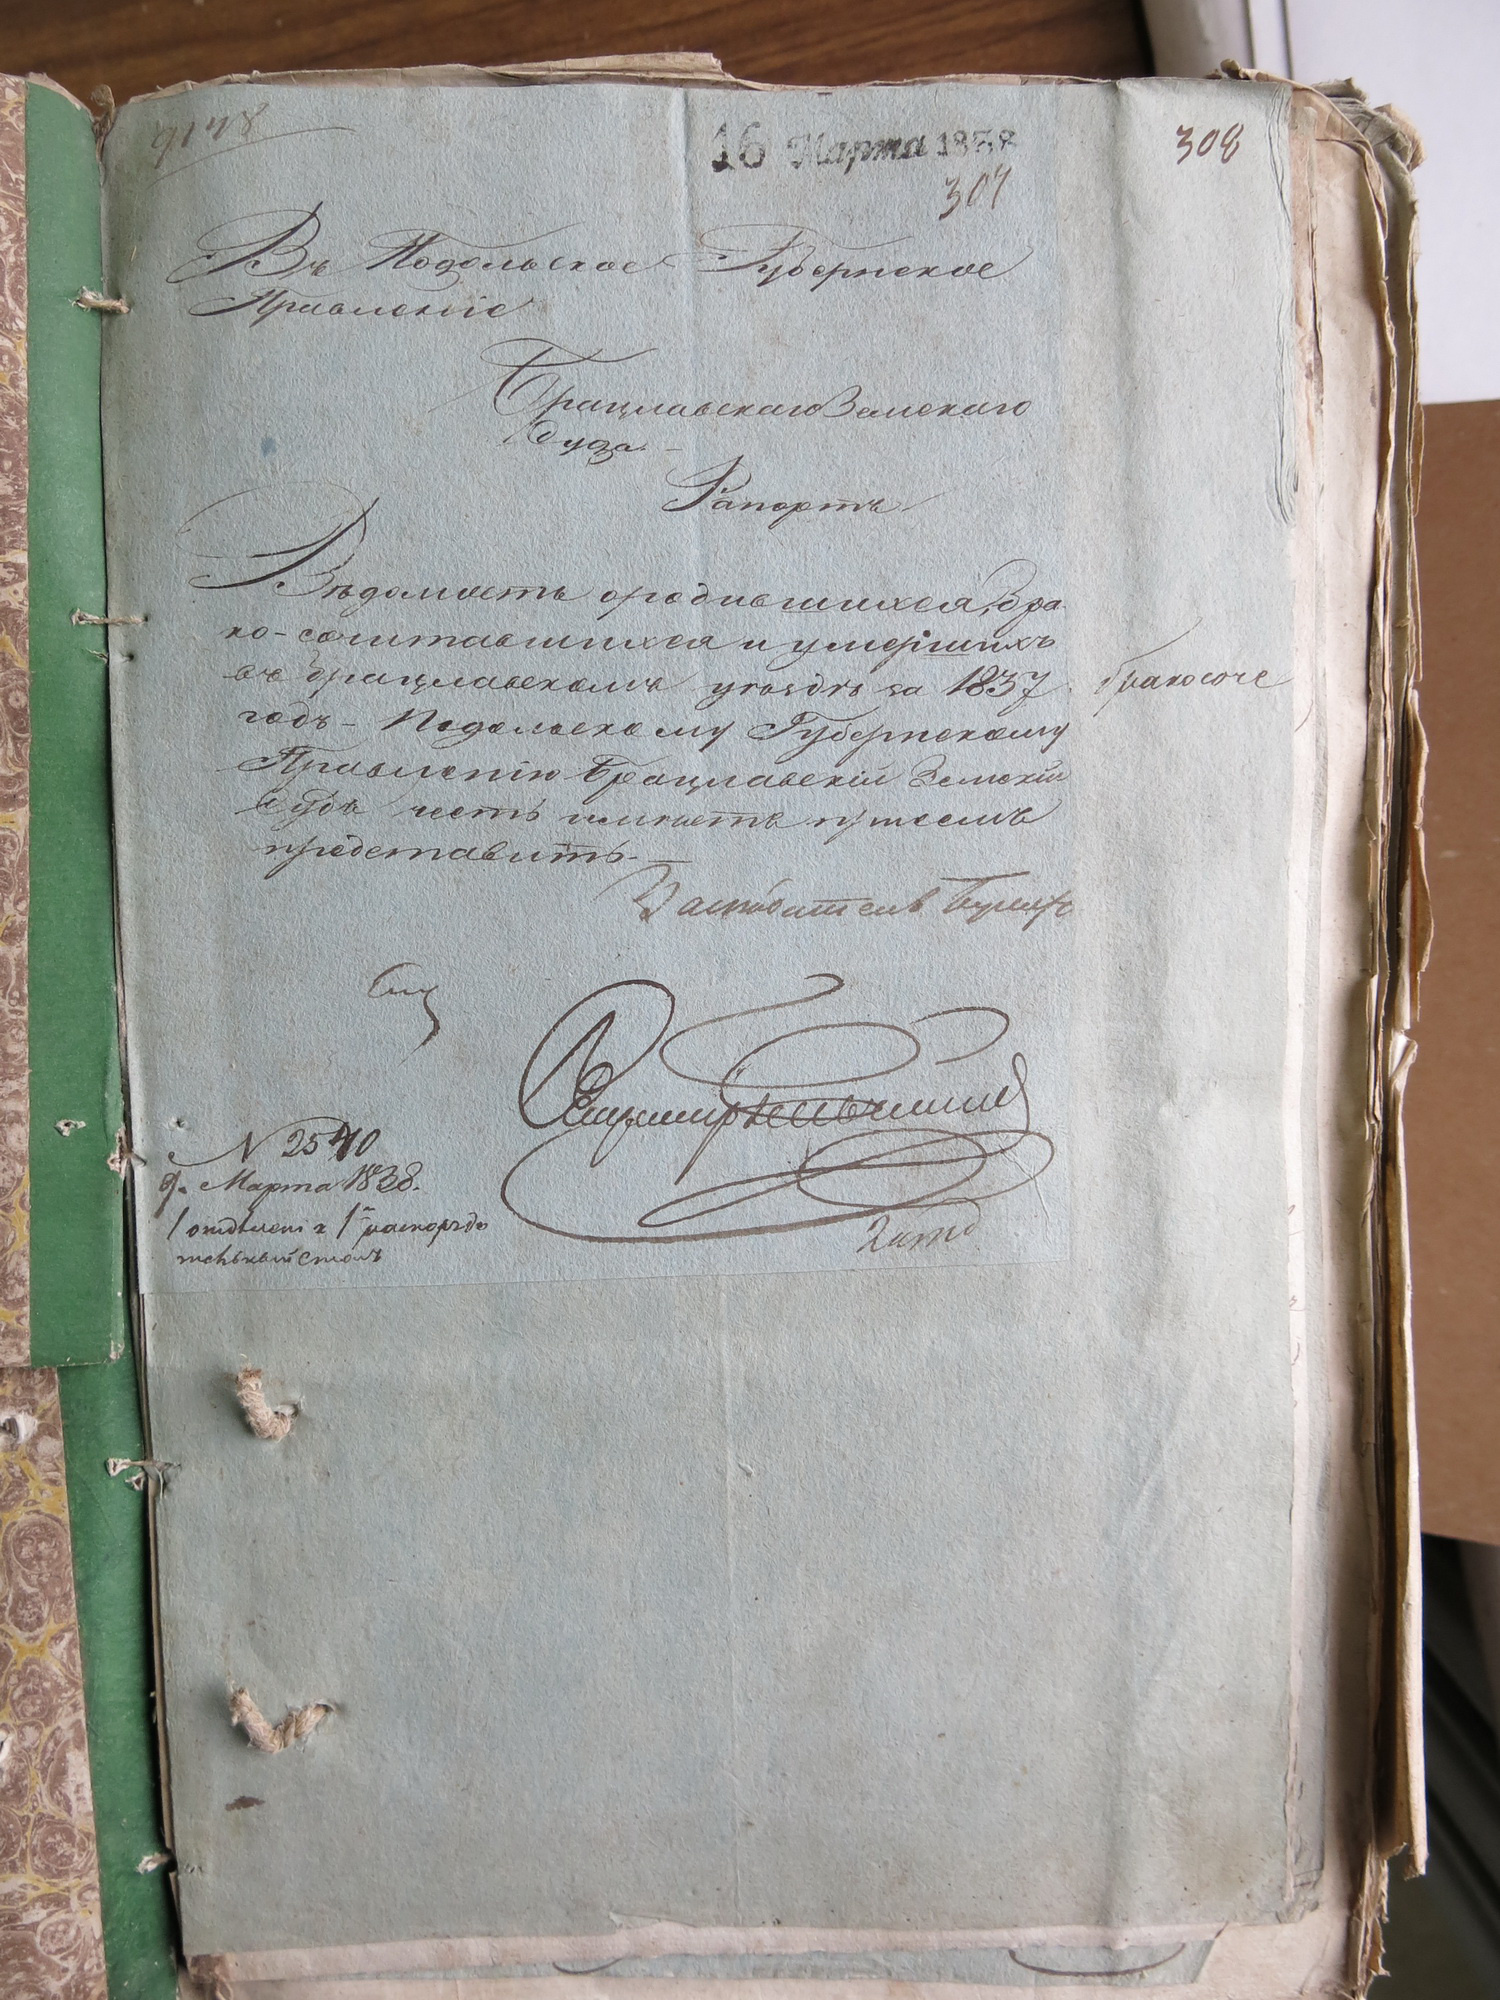 9148
16 Марта 1838
308
307
Въ Подольское Губернское
Правленіе
Брацлавскаго Земскаго
Суда
Рапортъ
Вѣдомость о родившихся, бра-
ко-сочитавшихся и умершихъ
въ Брацлавскомъ уѣздѣ за 1837
бракосоче
годъ – Подольскому Губернскому
Правленію Брацлавскій Земскій
Судъ честь имѣетъ при семъ
представить.
Засѣдатель
№ 2540
9. Марта 1838.
1 отдѣленія 1й распоряди
тельный столъ